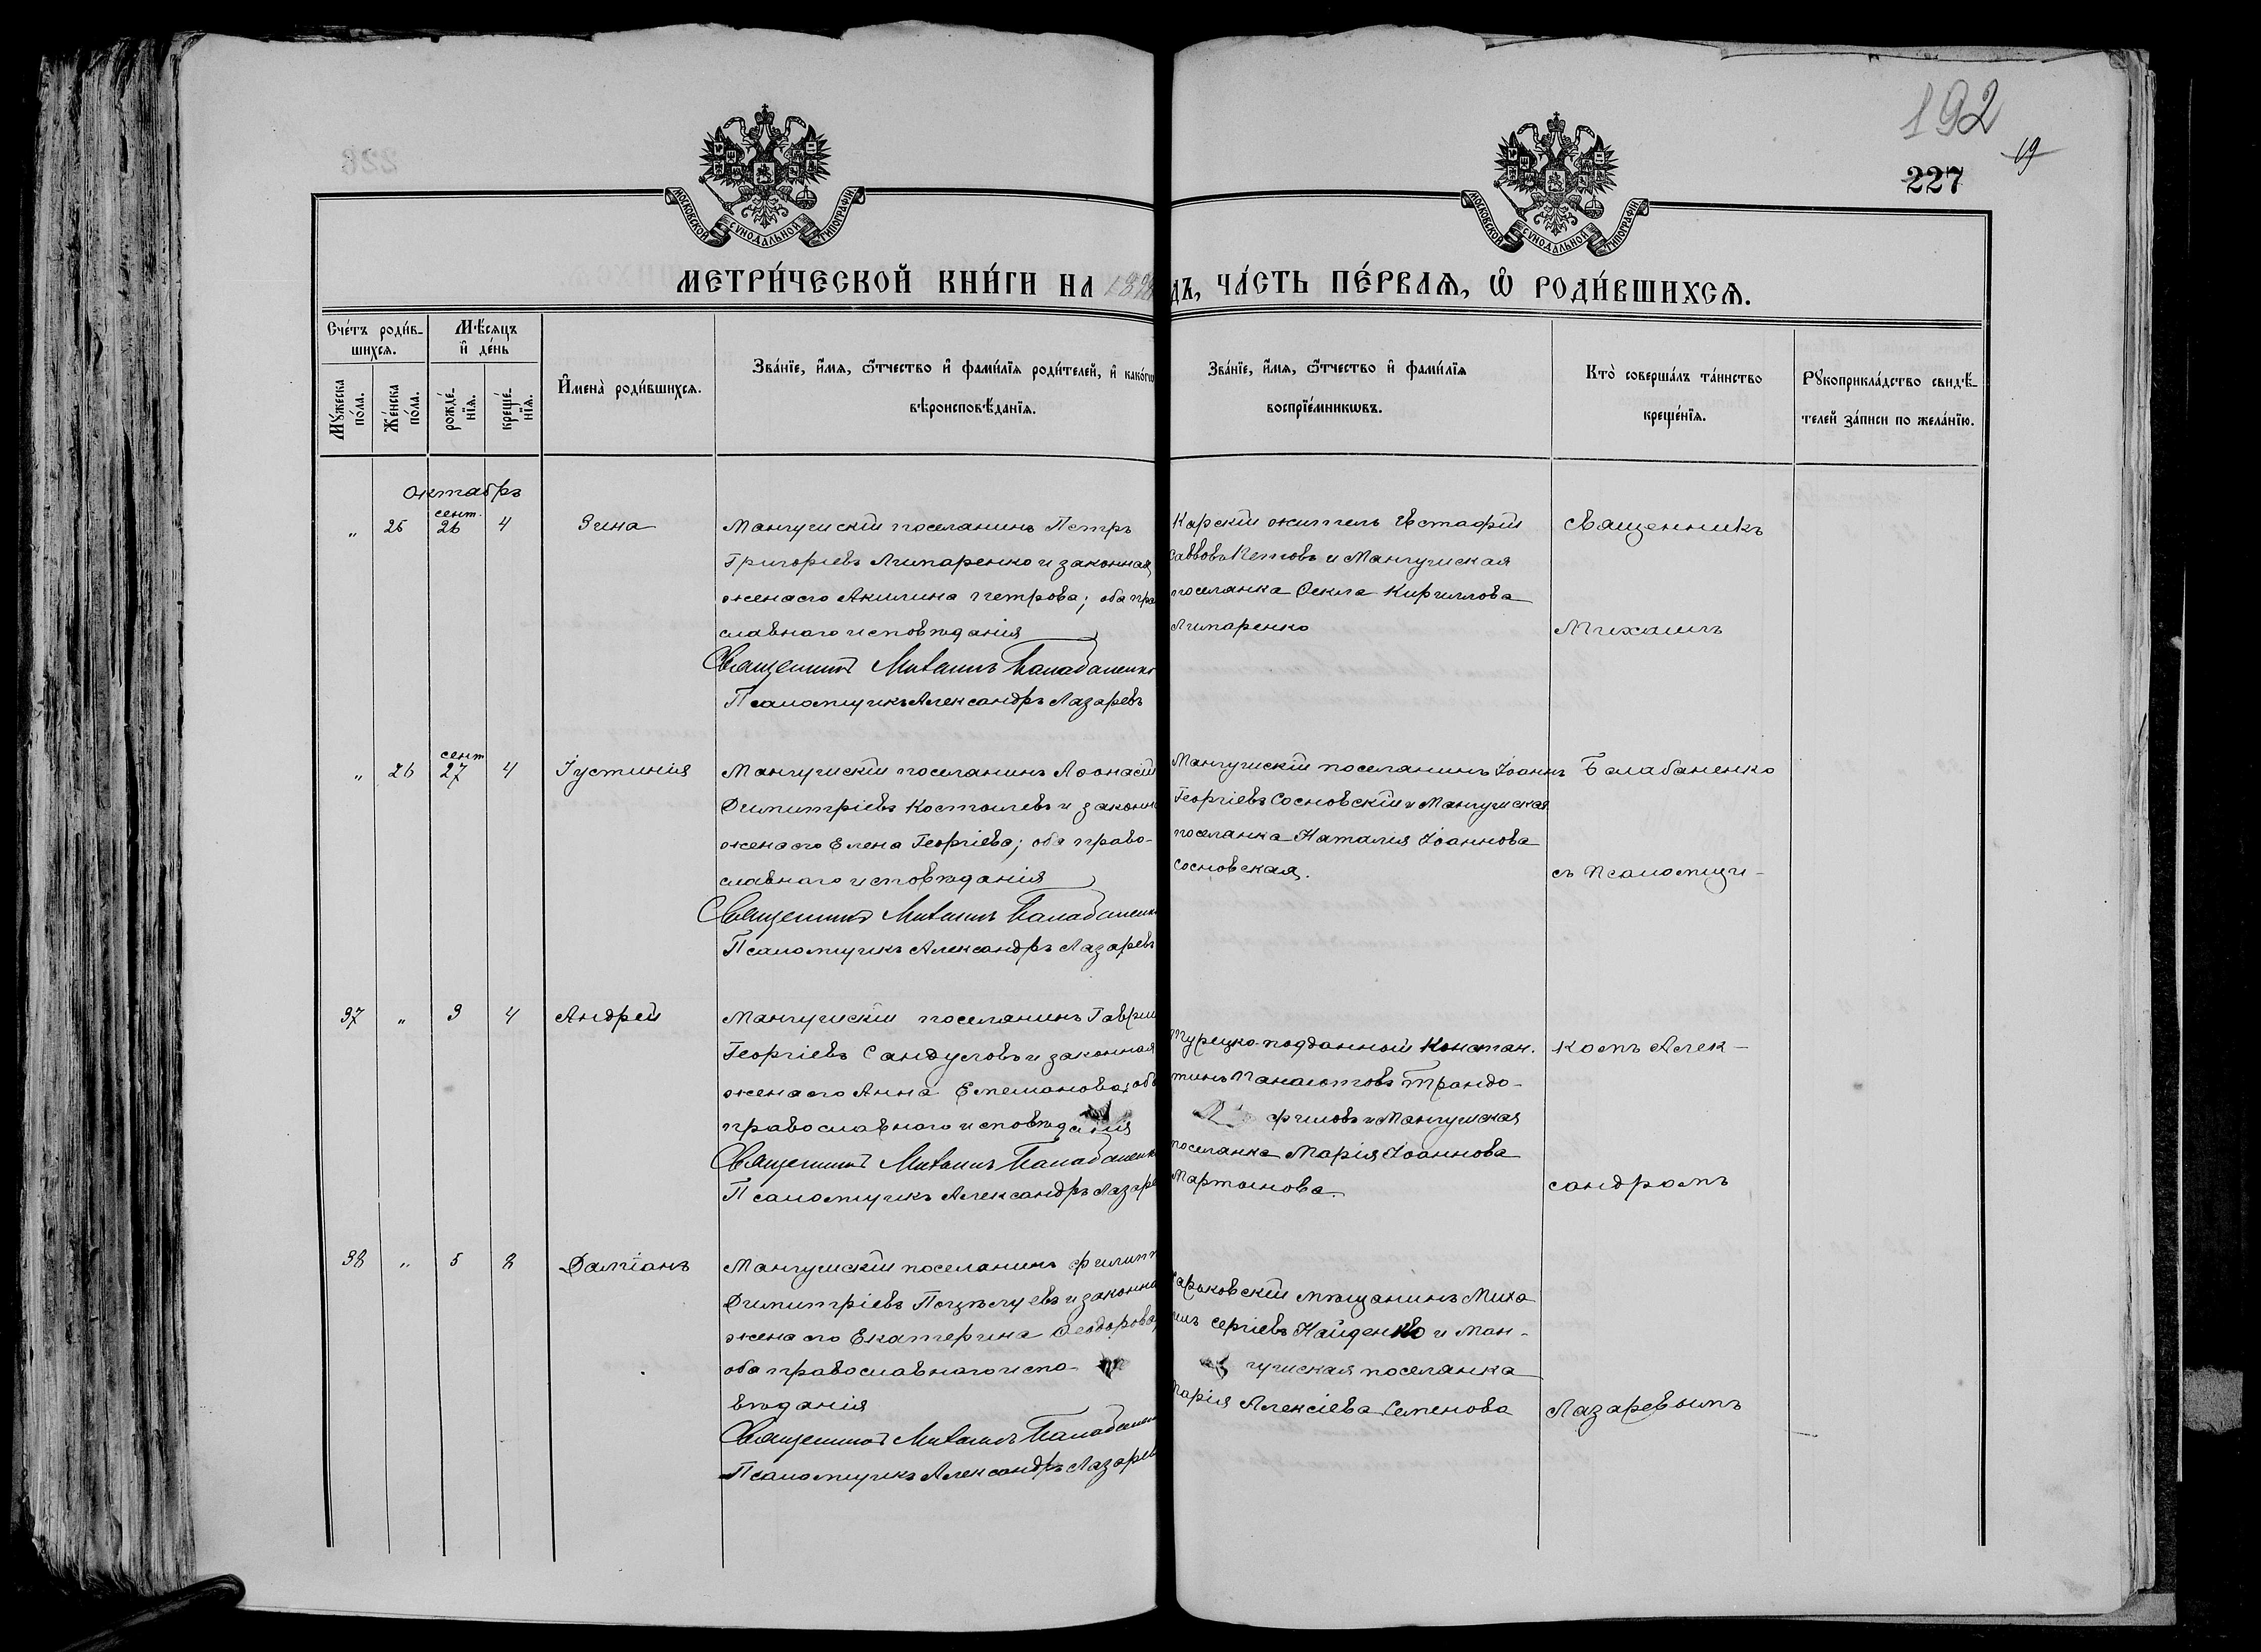 192
19
227
МОСКОВСКОЙ СѴНОДАЛЬНОЙ ТИПОГРАФІИ
МОСКОВСКОЙ СѴНОДАЛЬНОЙ ТИПОГРАФІИ
МЕТРИ́ЧЕСКОЙ КНИ́ГИ НА
ДЪ, ЧА́СТЬ ПЕ́РВАѦ, Ѡ҆ РОДИ́ВШИХСѦ.
Сче́тъ роди́в-
шихсѧ.
Мѣ́сѧцъ
и҆ де́нь
Мꙋ́жеска
по́ла.
Же́нска
по́ла.
рожде́-
нїѧ.
креще́-
нїѧ.
И҆мена̀ роди́вшихсѧ.
Зва́нїе, и҆́мѧ, ѻ҆́тчество и҆ фами́лїѧ роди́телей, и҆ како́гѡ
вѣроисповѣ́данїѧ.
Зва́нїе, и҆́мѧ, ѻ҆́тчество и҆ фами́лїѧ
воспрїе́мникѡвъ.
Кто̀ соверша́лъ та́инство
креще́нїѧ.
Рꙋкоприкла́дство свидѣ́-
телей за́писи по жела́нїю.
Октябрь
„ 25 сент. 26 4 Зина
Мангушскій поселянинъ Петръ
Григоріевъ Лимаренко и законная
жена его Акилина Петрова; оба пра
славнаго исповѣданія
Священникъ Михаилъ Балабаненко
Псаломщикъ Александръ Лазаревъ
Карскій житель Евстафій
Саввовъ и Мангушская
поселянка Ѳекла Кириллова
Лимаренко
Священникъ
Михаилъ
„ 26 сент 27 4 Іустинія
Мангушскій поселянинъ Аѳанасій
Димитріевъ Костылевъ и законн
жена его Елена Георгіева; оба право-
славнаго исповѣданія
Священникъ Михаилъ Балабаненк
Псаломщикъ Александръ Лазаревъ
Мангушскій поселянинъ Іоаннъ
Георгіевъ Сосновскій и Мангушская
поселянка Наталія Іоаннова
Сосновская.
Балабаненко
съ Псаломщи-
37 „ 3 4 Андрей
Мангушскій поселянинъ Гаврии
Георгіевъ Сандуловъ и законная
жена его Анна Емельянова; об
православнаго исповѣданія
Священникъ Михаилъ Балабаненк
Псаломщикъ Александръ Лазаре
Турецко-подданный Констан-
тинъ Панаіотовъ Трандо-
филовъ и Мангушская
поселянка Марія Іоаннова
Мартынова.
комъ Алек-
сандромъ
38 „ 5 8 Даміанъ
Мангушскій поселянинъ Филипп
Димитріевъ Поцѣлуевъ и законна
жена его Екатерина Ѳеодорова,
оба православнаго испо-
вѣданія
Священникъ Михаилъ Балабанен
Псаломщикъ Александръ Лазарев
арьковскій мѣщанинъ Миха
илъ Сергіевъ Найденко и Ман-
гушская поселянка
Марія Алексіева Семенова
Лазаревымъ